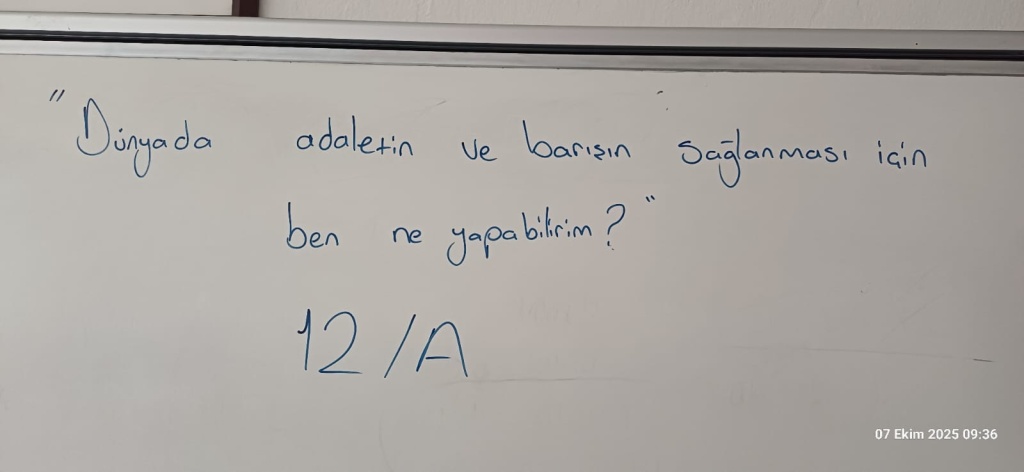 "Dünyada adaletin ve barışın sağlanması için
ben ne yapabilirim?"
12/A
07 Ekim 2025 09:36